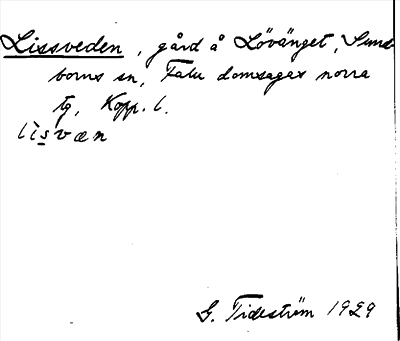 Lissveden, gård å Lövänget, Sund-
borns sn, Falu domsagas norra
tg, Kopp. l.
lìsvæn
G. Tideström 1929